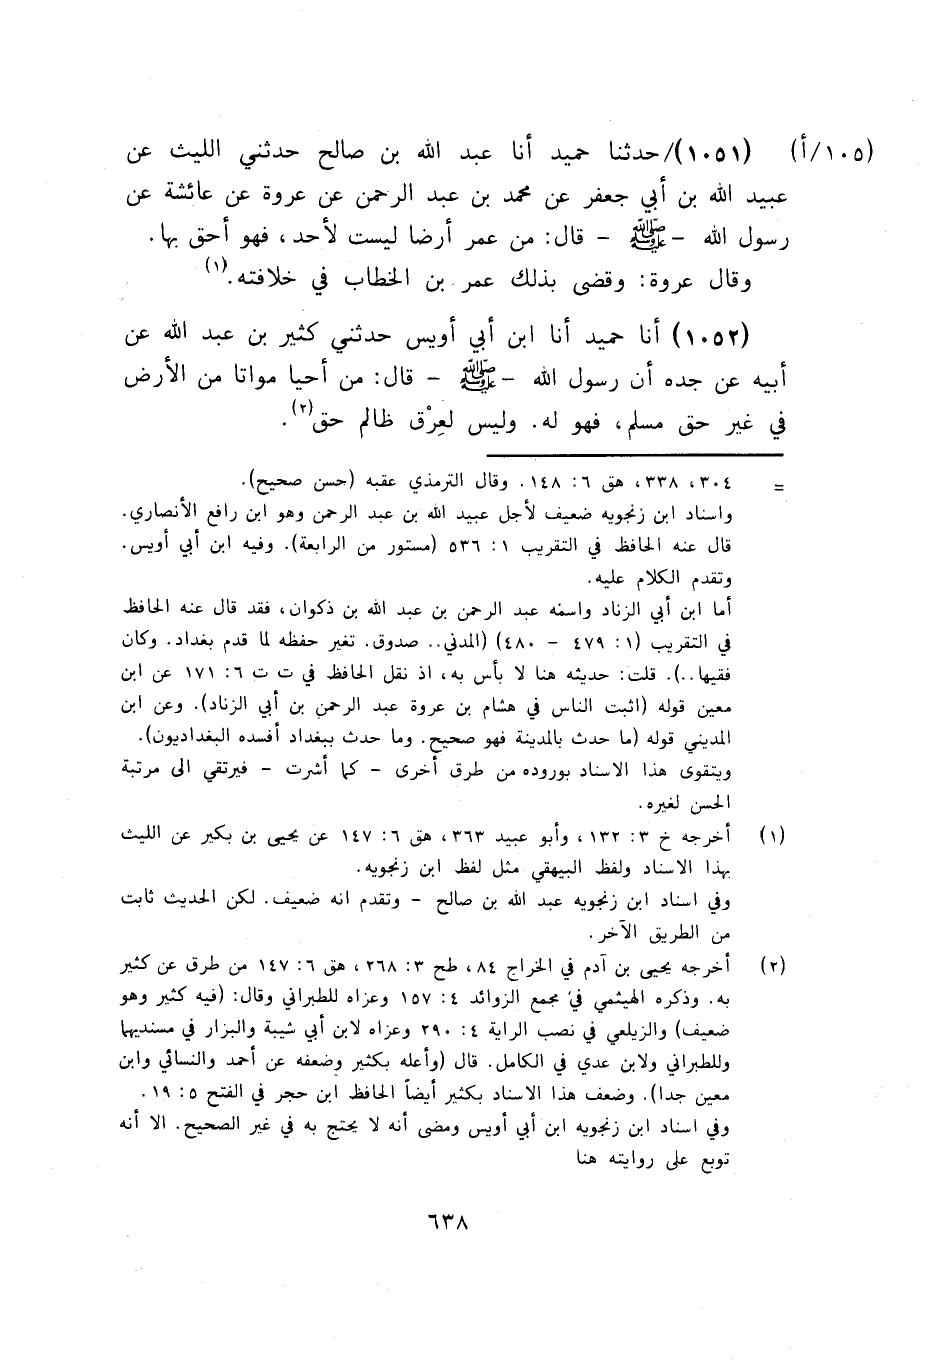 (١٠٥/أ) (١٠٥١)/حدثنا حميد أنا عبد الله بن صالح حدثني الليث عن
عبيد الله بن أبي جعفر عن محمد بن عبد الرحمن عن عروة عن عائشة عن
رسول الله -ﷺ - قال: من عمر أرضا ليست لأحد، فهو أحق بها.
وقال عروة: وقضى بذلك عمر بن الخطاب في خلافته.(١)
(١٠٥٢) أنا حميد أنا ابن أبي أويس حدثني كثير بن عبد الله عن
أبيه عن جده أن رسول الله -ﷺ - قال: من أحيا مواتا من الأرض
في غير حق مسلم، فهو له. وليس لعِرْق ظالم حق(٢).
= ٣٠٤، ٣٣٨، هق ٦: ١٤٨. وقال الترمذي عقبه (حسن صحيح).
واسناد ابن زنجويه ضعيف لأجل عبيد الله بن عبد الرحمن وهو ابن رافع الأنصاري.
قال عنه الحافظ في التقريب ١: ٥٣٦ (مستور من الرابعة). وفيه ابن أبي أويس.
وتقدم الكلام عليه.
أما ابن أبي الزناد واسمه عبد الرحمن بن عبد الله بن ذكوان، فقد قال عنه الحافظ
في التقريب (١: ٤٧٩ - ٤٨٠) (المدني.. صدوق. تغير حفظه لما قدم بغداد. وكان
فقيها..). قلت: حديثه هنا لا بأس به، اذ نقل الحافظ في ت ت ٦: ١٧١ عن ابن
معين قوله (اثبت الناس في هشام بن عروة عبد الرحمن بن أبي الزناد). وعن ابن
المديني قوله (ما حدث بالمدينة فهو صحيح. وما حدث ببغداد أفسده البغداديون).
ويتقوى هذا الاسناد بوروده من طرق أخرى - كما أشرت - فيرتقي الى مرتبة
الحسن لغيره.
(١) أخرجه خ ٣: ١٣٢، وأبو عبيد ٣٦٣، هق ٦: ١٤٧ عن يحيى بن بكير عن الليث
بهذا الاسناد ولفظ البيهقي مثل لفظ ابن زنجويه.
وفي اسناد ابن زنجويه عبد الله بن صالح - وتقدم انه ضعيف. لكن الحديث ثابت
من الطريق الآخر.
(٢) أخرجه يحيى بن آدم في الخراج ٨٤، طح ٣: ٢٦٨، هق ٦: ١٤٧ من طرق عن كثير
به. وذكره الهيثمي في مجمع الزوائد ٤: ١٥٧ وعزاه للطبراني وقال: (فيه كثير وهو
ضعيف) والزيلعي في نصب الراية ٤: ٢٩٠ وعزاه لابن أبي شيبة والبزار في مسنديهما
وللطبراني ولابن عدي في الكامل. قال (وأعله بكثير وضعفه عن أحمد والنسائي وابن
معين جدا). وضعف هذا الاسناد بكثير أيضاً الحافظ ابن حجر في الفتح ٥: ١٩.
وفي اسناد ابن زنجويه ابن أبي أويس ومضى أنه لا يحتج به في غير الصحيح. الا أنه
توبع على روايته هنا
٦٣٨